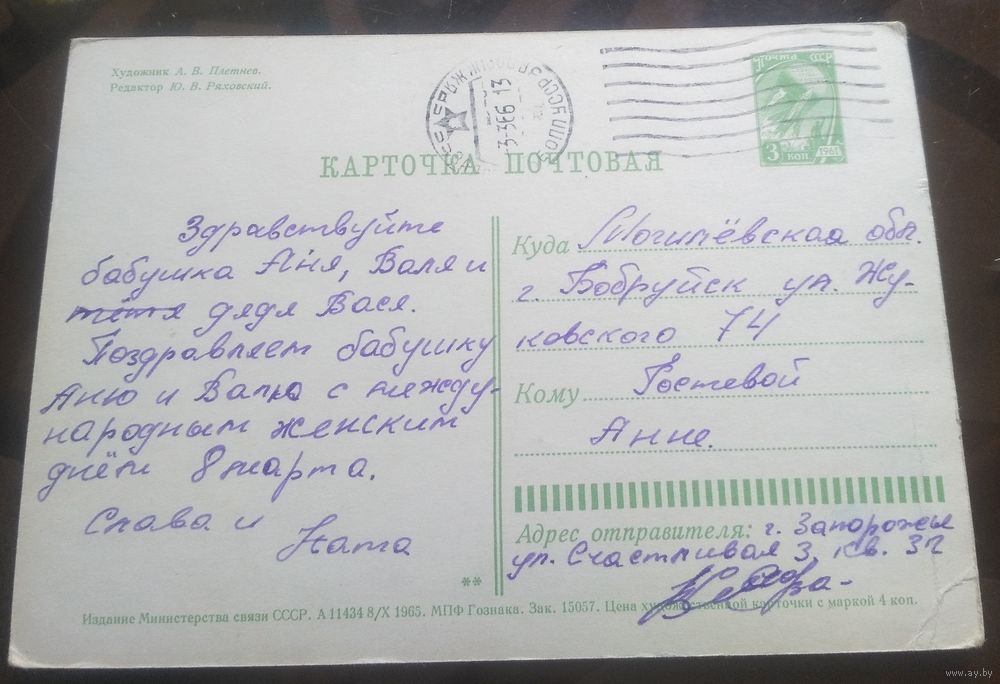 Художник А. В. Плетнев.
Редактор Ю. В. Ряховский.
3-366.13
ПОЧТА СССР
3 КОП. 1961
КАРТОЧКА ПОЧТОВАЯ
Здравствуйте
бабушка Аня, Валя и
тётя дядя Вася.
Поздравляем бабушку
Аню и Валю с между-
народным женским
днём 8 марта.
Слава и
Ната
Куда Могилёвская обл.
г. Бобруйск ул. Жу-
ковского 74
Кому Ростевой
Анне.
Адрес отправителя: г. Запорожье
ул. Счастливая 3, кв. 32
**
Издание Министерства связи СССР. А 11434 8/X 1965. МПФ Гознака. Зак. 15057. Цена художественной карточки с маркой 4 коп.
www.ay.by